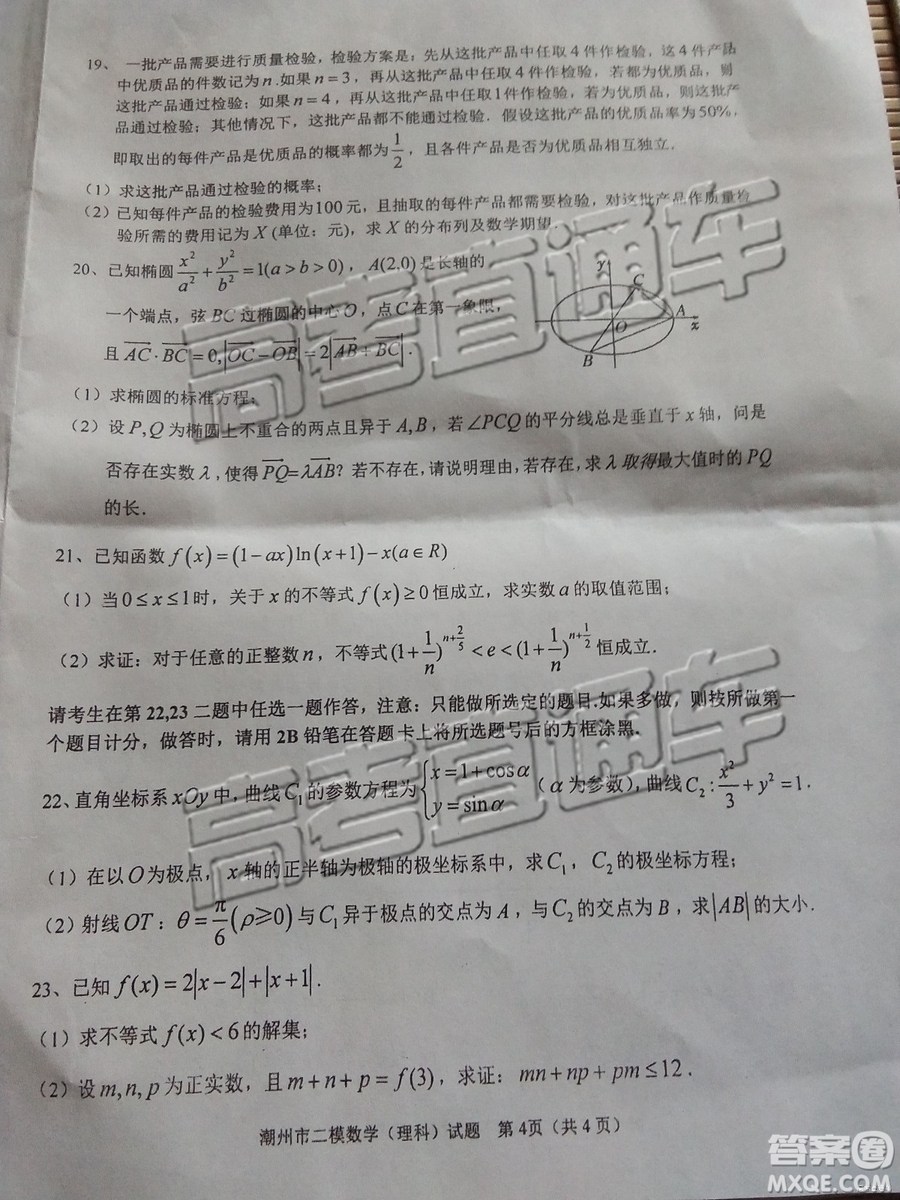 19、 一批产品需要进行质量检验，检验方案是：先从这批产品中任取4件作检验，这4件产品
中优质品的件数记为n.如果n=3，再从这批产品中任取4件作检验，若都为优质品，则
这批产品通过检验；如果n=4，再从这批产品中任取1件作检验，若为优质品，则这批产
品通过检验；其他情况下，这批产品都不能通过检验．假设这批产品的优质品率为50%，
即取出的每件产品是优质品的概率都为1/2，且各件产品是否为优质品相互独立．
（1）求这批产品通过检验的概率；
（2）已知每件产品的检验费用为100元，且抽取的每件产品都需要检验，对这批产品作质量检
验所需的费用记为X(单位：元)，求X的分布列及数学期望．
20、已知椭圆x²/a²+y²/b²=1(a>b>0)，A(2,0)是长轴的
一个端点，弦BC过椭圆的中心O，点C在第一象限，
且AC·BC=0,|OC−OB|=2|AB+BC|．
y
C
O
A
x
B
（1）求椭圆的标准方程；
（2）设P,Q为椭圆上不重合的两点且异于A,B，若∠PCQ的平分线总是垂直于x轴，问是
否存在实数λ，使得PQ=λAB？若不存在，请说明理由，若存在，求λ取得最大值时的PQ
的长．
21、已知函数f(x)=(1−ax)ln(x+1)−x(a∈R)
（1）当0≤x≤1时，关于x的不等式f(x)≥0恒成立，求实数a的取值范围；
（2）求证：对于任意的正整数n，不等式(1+1/n)^(n+2/5)<e<(1+1/n)^(n+1/2)恒成立．
请考生在第22,23二题中任选一题作答，注意：只能做所选定的题目.如果多做，则按所做第一
个题目计分，做答时，请用2B铅笔在答题卡上将所选题号后的方框涂黑.
22、直角坐标系xOy中，曲线C₁的参数方程为{x=1+cosα y=sinα（α为参数），曲线C₂:x²/3+y²=1．
（1）在以O为极点，x轴的正半轴为极轴的极坐标系中，求C₁，C₂的极坐标方程；
（2）射线OT：θ=π/6(ρ≥0)与C₁异于极点的交点为A，与C₂的交点为B，求|AB|的大小．
23、已知f(x)=2|x−2|+|x+1|．
（1）求不等式f(x)<6的解集；
（2）设m,n,p为正实数，且m+n+p=f(3)，求证：mn+np+pm≤12．
潮州市二模数学（理科）试题 第4页（共4页）
高考直通车
高考直通车
答案圈
MXQE.COM